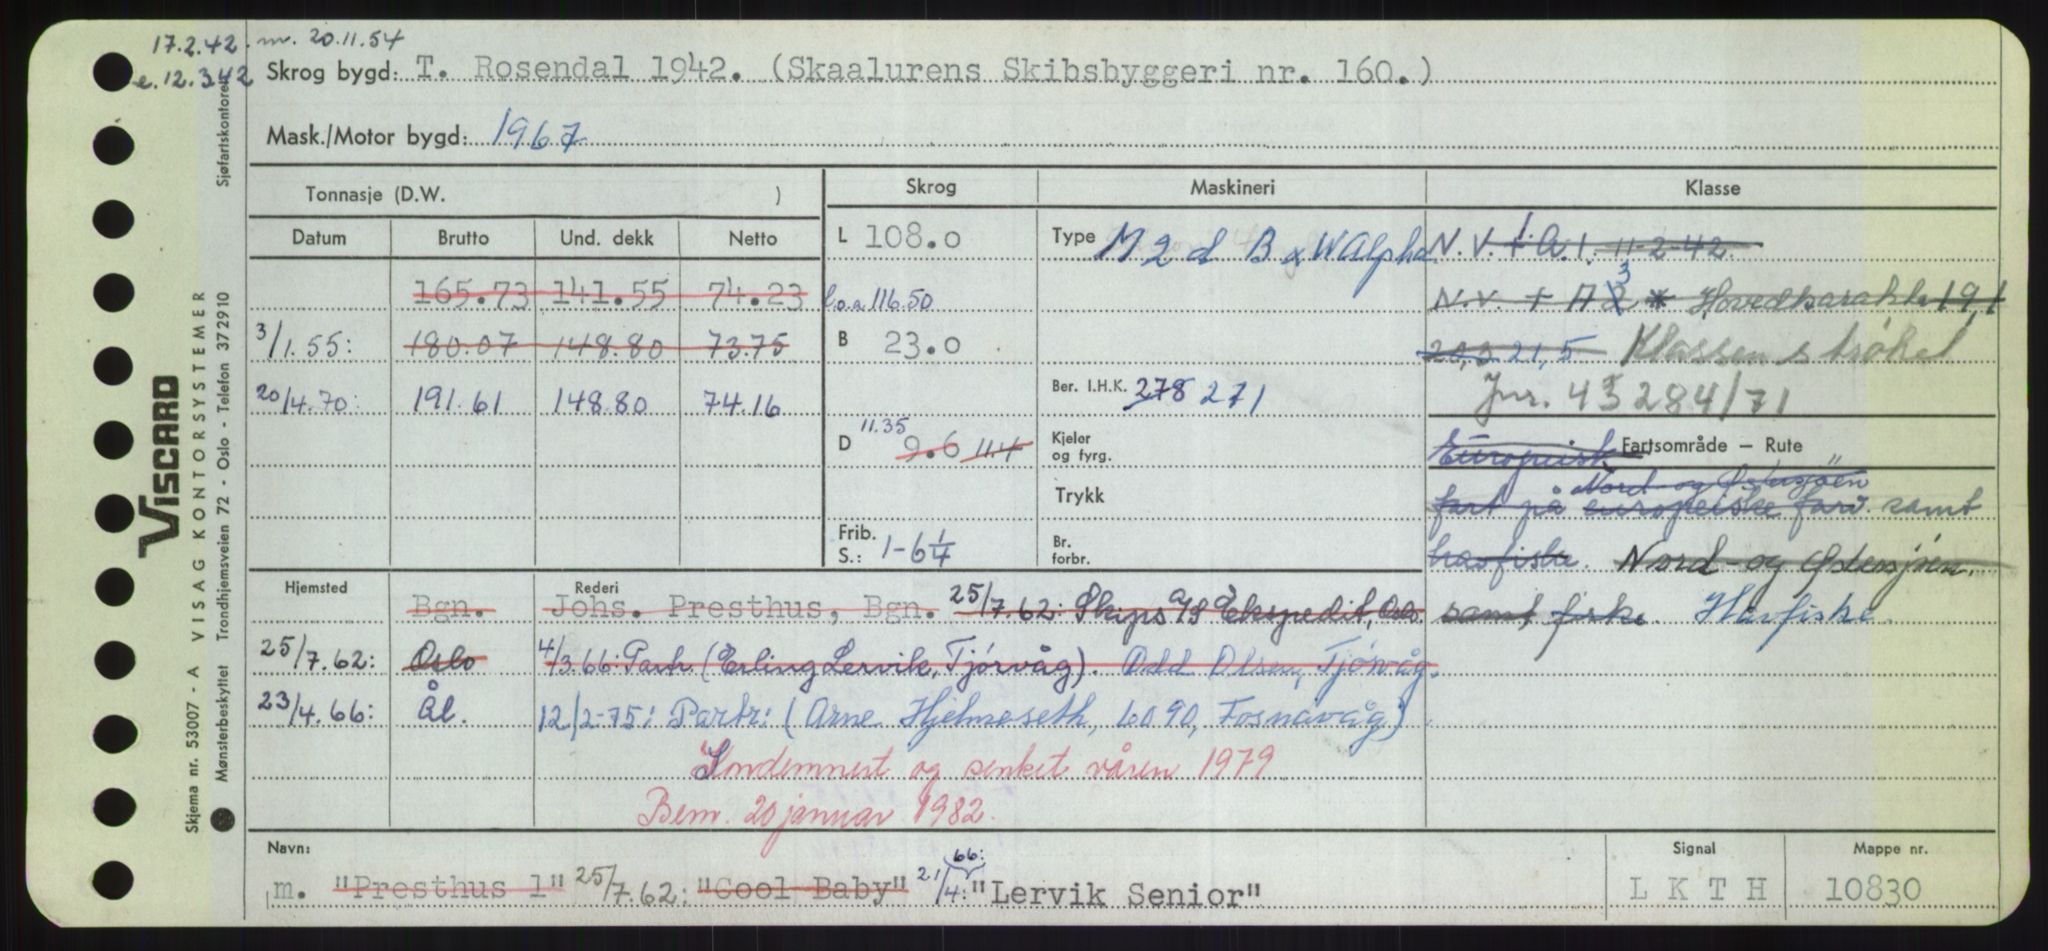 17.2.42. m. 20.11.54
e. 12.3.42
Skrog bygd: T. Rosendal 1942. (Skaalurens Skibsbyggeri nr. 160.)
Mask./Motor bygd: 1967
Tonnasje (D.W. )
Skrog
Maskineri
Klasse
Datum Brutto Und. dekk Netto
165.73 141.55 74.23
3/1.55: 180.07 148.80 73.75
20/4.70: 191.61 148.80 74.16
L 108.0
l.o.a 116.50
B 23.0
11.35
D 9.6 11.4
Frib.
S.: 1-6 1/4
Type M 2 d B x W Alpha
Ber. I.H.K. 278 271
Kjeler
og fyrg.
Trykk
Br.
forbr.
N.V. + A.1. 11-2-42
3
N.V. + A 2 * Hovedkarakter 19,1
20,2 21,5 Klassen strøket
Jnr. 43284/71
Fartsområde – Rute
Europeisk
Nord og Østersjöen
fart på europeiske farv. samt
havfiske. Nord- og Østersjöen.
samt fiske. Havfiske.
Hjemsted Rederi
Bgn. Johs. Presthus, Bgn. 25/7.62: Skips A/S Ekspedit, Oslo.
25/7.62: Oslo 4/3.66: Partr. (Erling Lervik, Tjörvåg). Odd Olsen, Tjörvåg.
23/4.66: Ål. 12/2-75: Partr: (Arne Hjelmeseth, 6090, Fosnavåg)
Kondemnert og senket våren 1979
Bem. 20 januar 1982.
Navn:
Signal
Mappe nr.
m. "Presthus 1" 25/7.62: "Cool Baby" 21/4.66: "Lervik Senior"
L K T H
10830
VISCARD
Skjema nr. 53007 - A VISAG KONTORSYSTEMER
Mønsterbeskyttet Trondhjemsveien 72 - Oslo - Telefon 372910 Sjøfartskontoret